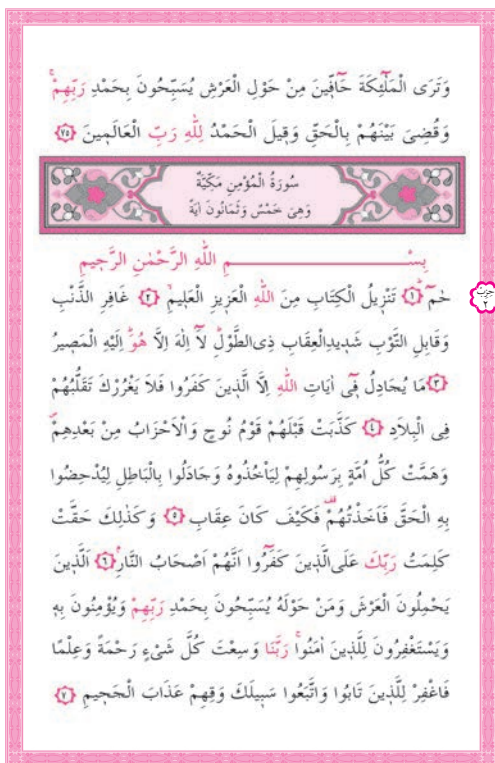 وَتَرَى الْمَلٰٓئِكَةَ حَٓافّ۪ينَ مِنْ حَوْلِ الْعَرْشِ يُسَبِّحُونَ بِحَمْدِ رَبِّهِمْۚ
وَقُضِىَ بَيْنَهُمْ بِالْحَقِّ وَق۪يلَ الْحَمْدُ لِلّٰهِ رَبِّ الْعَالَم۪ينَ ﴿٧٥﴾
سُورَةُ الْمُؤْمِنِ مَكِّيَّةٌ
وَهِىَ خَمْسٌ وَثَمَانُونَ اٰيَةً
بِسْمِ اللّٰهِ الرَّحْمٰنِ الرَّح۪يمِ
حٰمٓۜ ﴿١﴾ تَنْز۪يلُ الْكِتَابِ مِنَ اللّٰهِ الْعَز۪يزِ الْعَل۪يمِۙ ﴿٢﴾ غَافِرِ الذَّنْبِ
حزب ٢
وَقَابِلِ التَّوْبِ شَد۪يدِالْعِقَابِ ذِى الطَّوْلِۜ لَٓا اِلٰهَ اِلَّا هُوَۜ اِلَيْهِ الْمَص۪يرُ
﴿٣﴾ مَا يُجَادِلُ ف۪ٓى اٰيَاتِ اللّٰهِ اِلَّا الَّذ۪ينَ كَفَرُوا فَلَا يَغْرُرْكَ تَقَلُّبُهُمْ
فِى الْبِلَادِ ﴿٤﴾ كَذَّبَتْ قَبْلَهُمْ قَوْمُ نُوحٍ وَالْاَحْزَابُ مِنْ بَعْدِهِمْۖ
وَهَمَّتْ كُلُّ اُمَّةٍ بِرَسُولِهِمْ لِيَأْخُذُوهُ وَجَادَلُوا بِالْبَاطِلِ لِيُدْحِضُوا
بِهِ الْحَقَّ فَاَخَذْتُهُمْ۠ فَكَيْفَ كَانَ عِقَابِ ﴿٥﴾ وَكَذٰلِكَ حَقَّتْ
كَلِمَتُ رَبِّكَ عَلَى الَّذ۪ينَ كَفَرُٓوا اَنَّهُمْ اَصْحَابُ النَّارِۢ ﴿٦﴾ اَلَّذ۪ينَ
يَحْمِلُونَ الْعَرْشَ وَمَنْ حَوْلَهُ يُسَبِّحُونَ بِحَمْدِ رَبِّهِمْ وَيُؤْمِنُونَ بِه۪
وَيَسْتَغْفِرُونَ لِلَّذ۪ينَ اٰمَنُواۚ رَبَّنَا وَسِعْتَ كُلَّ شَىْءٍ رَحْمَةً وَعِلْمًا
فَاغْفِرْ لِلَّذ۪ينَ تَابُوا وَاتَّبَعُوا سَب۪يلَكَ وَقِهِمْ عَذَابَ الْجَح۪يمِ ﴿٧﴾